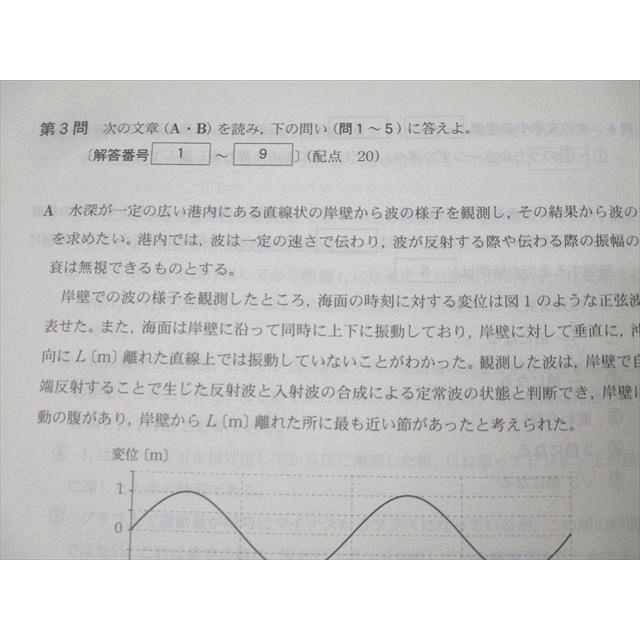 第3問 次の文章(A・B)を読み,下の問い(問1〜5)に答えよ。
〔解答番号 1 〜 9 〕(配点 20)
A 水深が一定の広い港内にある直線状の岸壁から波の様子を観測し,その結果から波の
を求めたい。港内では,波は一定の速さで伝わり,波が反射する際や伝わる際の振幅の
衰は無視できるものとする。
岸壁での波の様子を観測したところ,海面の時刻に対する変位は図1のような正弦波
表せた。また,海面は岸壁に沿って同時に上下に振動しており,岸壁に対して垂直に,沖
向にL〔m〕離れた直線上では振動していないことがわかった。観測した波は,岸壁で自
端反射することで生じた反射波と入射波の合成による定常波の状態と判断でき,岸壁に
動の腹があり,岸壁からL〔m〕離れた所に最も近い節があったと考えられた。
変位〔m〕
1
0